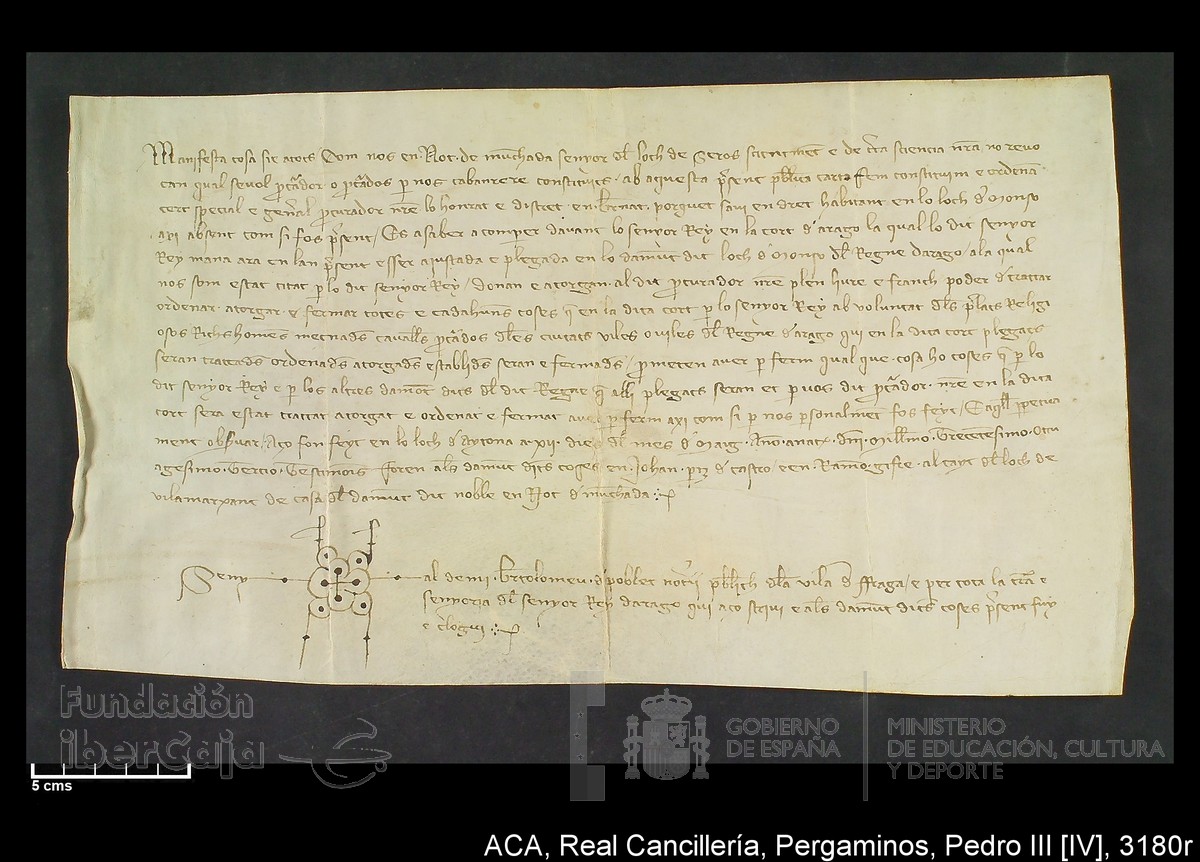 Manifesta cosa sie atots Com nos en Not de muncada senyor dl loch de Seros scientment e de crta sciencia nra no revo
can qual sevol pcador o pcados p nos caban rere constituits ab aquesta psent publica carta ffem constituim e ordena
cert special e genal pcurador nre lo honrat e discret en brnat porquet savi en dret habitant en lo loch d monso
axi absent com si fos psent Es asaber acomper davant lo senyor Rey en la cort d arago la qual lo dit senyor
Rey mana ara en lan psent esser aiustada e plegada en lo damunt dit loch d monso dl Regne darago ala qual
nos som estat citat p lo dit senyor Rey donan e atorgam al dit pcurador nre plen liure e franch poder d tractar
ordenar atorgar e fermar totes e cadahunes coses q en la dita cort p lo senyor Rey ab voluntat dls plats Religi
osos Richshomens mecnads cavalls pcados dles ciutats viles o viles dl Regne d arago qui en la dita cort plegats
seran tractads ordenads atorgads establids seran e fermads prometen aver p ferm qual que cosa ho coses q p lo
dit senyor Rey e p los altres damont dits dl dit Regne q alli plegats seran et p vos dit pcador nre en la dita
cort sera estat tractat atorgat e ordenat e fermat aver p ferm axi com si p nos psonalment fos feyt E aqll ppetua
ment obsuar Aço fon feyt en lo loch d Aytona a xii dies dl mes d Maig Ano anatx dni Millmo Trecentesimo Octu
agesimo Tercio Testimonis foren als damunt dits coses en Johan pz d castro e en Ramo gifre alcayt dl loch de
vilamarxant de casa dl damunt dit noble en Not d muncada
Seny al de mi brtolomeu d poblet notari publich dla vila d ffraga e per tota la tra e
senyoria dl senyor Rey darago qui aço scriui e als damunt dits coses psent fuy
e clogui
Fundación
iberCaja
GOBIERNO
DE ESPAÑA
MINISTERIO
DE EDUCACIÓN, CULTURA
Y DEPORTE
5 cms
ACA, Real Cancillería, Pergaminos, Pedro III [IV], 3180r